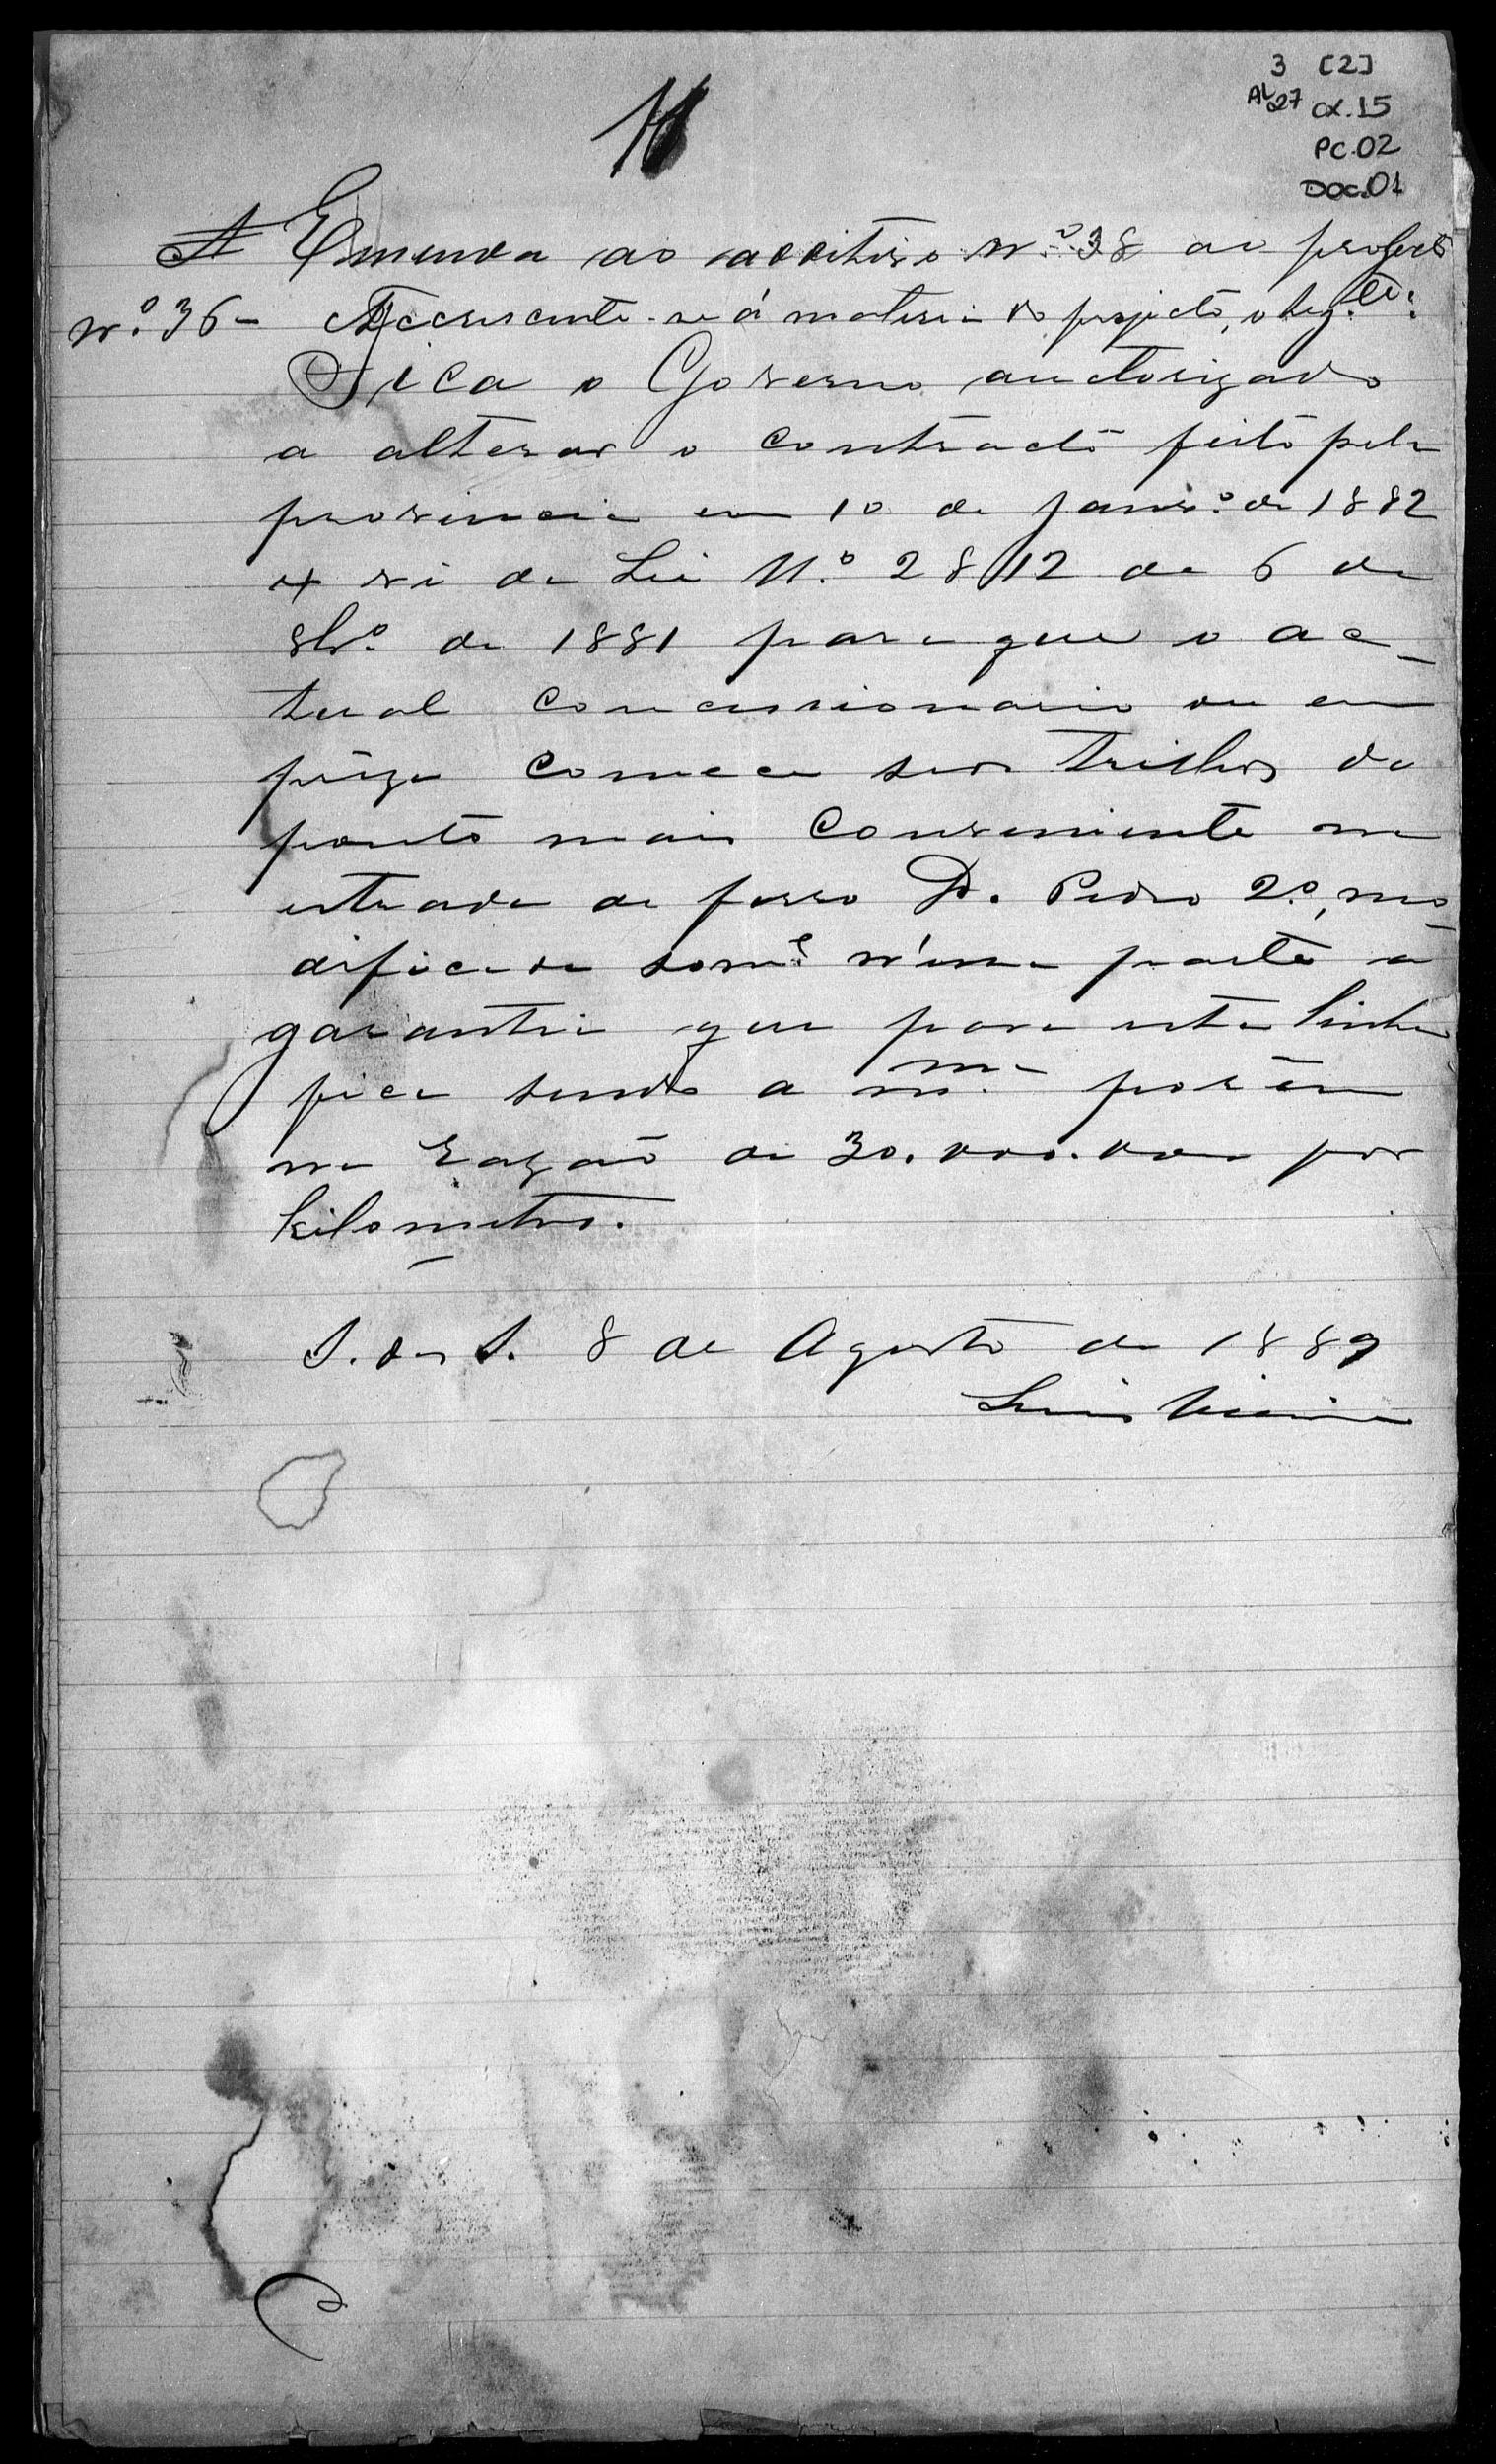 3 [2]
AL 27 CX.15
PC.02
DOC.01
A Emenda ao additivo Nº 38 ao projecto
nº 36 - Accrescente-se á materia do projecto, o seg.te:
Fica o Governo auctorizado
a alterar o contracto feito pela
provincia em 10 de Janrº de 1882
ex vi da Lei N.º 2812 de 6 de
8brº de 1881 para que o ac-
tual concessionario ou em
preza comece seus trilhos do
ponto mais conveniente na
estrada de ferro D. Pedro 2º, mo-
dificada some n'uma parte a
garantia que para esta linha
fica sendo a mma porém
na razão de 30.000.000 por
kilometro.
S. das S. 8 de Agosto de 1889